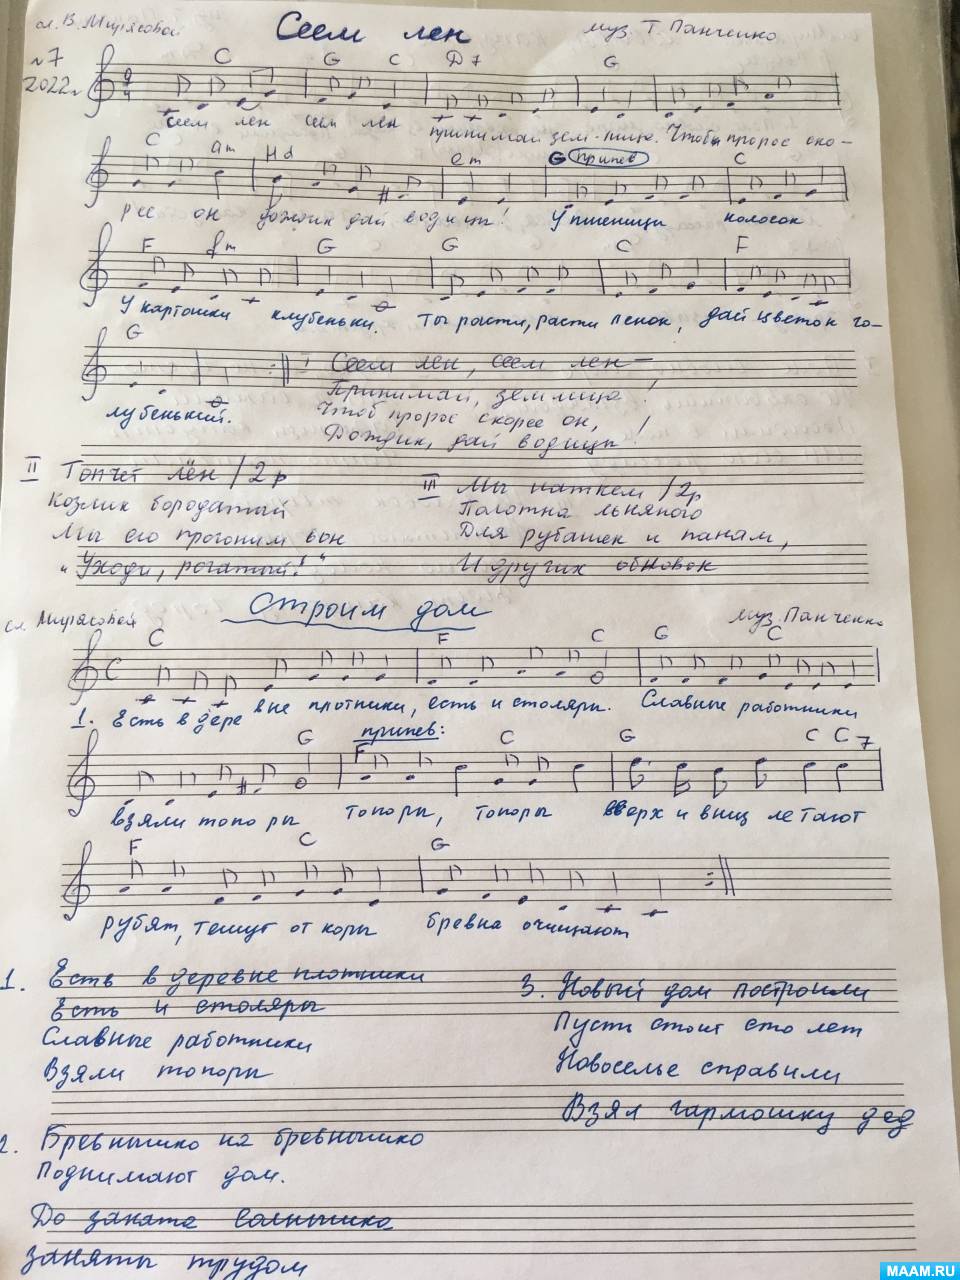 сл. В. Мирясовой Сеем лен муз. Т. Панченко
№7
2022г
C G C D7 G
Сеем лен сеем лен принимай зем-лица. Чтобы пророс ско-
C am H d em G припев C
рее он дождик дай водицы! У пшеницы колосок
F fm G G C F
У картошки клубеньки. Ты расти, расти ленок, дай цветок го-
G
лубенький.
I Сеем лен, сеем лен –
Принимай, землица!
Чтоб пророс скорее он,
Дождик, дай водицы!
II Топчет лён /2р
Козлик бородатый
Мы его прогоним вон
"Уходи, рогатый!"
III Мы наткем /2р
Полотна льняного
Для рубашек и панам,
И других обновок
Строим дом
сл. Мирясовой муз. Панченко
C F C G C
1. Есть в дере вне плотники, есть и столяры. Славные работники
G припев: F C G C C7
взяли топо ры топоры, топоры вверх и вниз летают
F C G
рубят, тешут от коры бревна очищают
1. Есть в деревне плотники
Есть и столяры
Славные работники
Взяли топоры
2. Бревнышко на бревнышко
Поднимают дом.
До заката солнышка
Заняты трудом
3. Новый дом построили
Пусть стоит сто лет
Новоселье справили
Взял гармошку дед
MAAM.RU